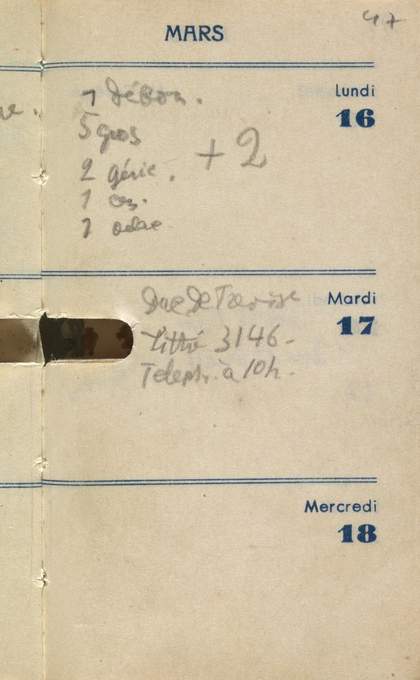 47
MARS
Lundi
16
1 Débon.
5 gros
+ 2
2 génie.
1
1
Mardi
17
Duc De Trévise
Littré 3146 -
Téléph. à 10h.
Mercredi
18